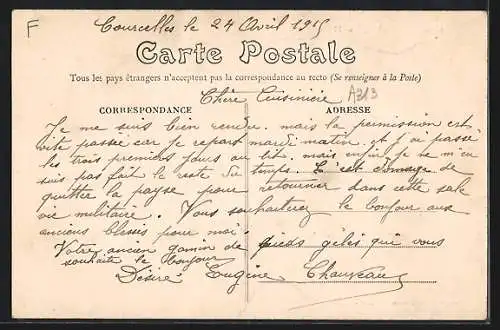 F
Courcelles le 24 Avril 1915
Carte Postale
Tous les pays étrangers n'acceptent pas la correspondance au recto (Se renseigner à la Poste)
Chère Cuisinière
A313
CORRESPONDANCE
ADRESSE
Je me suis bien rendu. mais la permission est
vite passée car je repart mardi matin. et j'ai passé
les trois premiers jours au lit. mais enfin je ne m'en
suis pas fait le reste du temps. C'est domage de
quitter la payse pour retourner dans cette sale
vie militaire. Vous souhaiterez le bonjour aux
anciens blessés pour moi.
Votre ancien gamin de pieds gelés qui vous
souhaite le bonjour
Désiré Eugène Chauveau